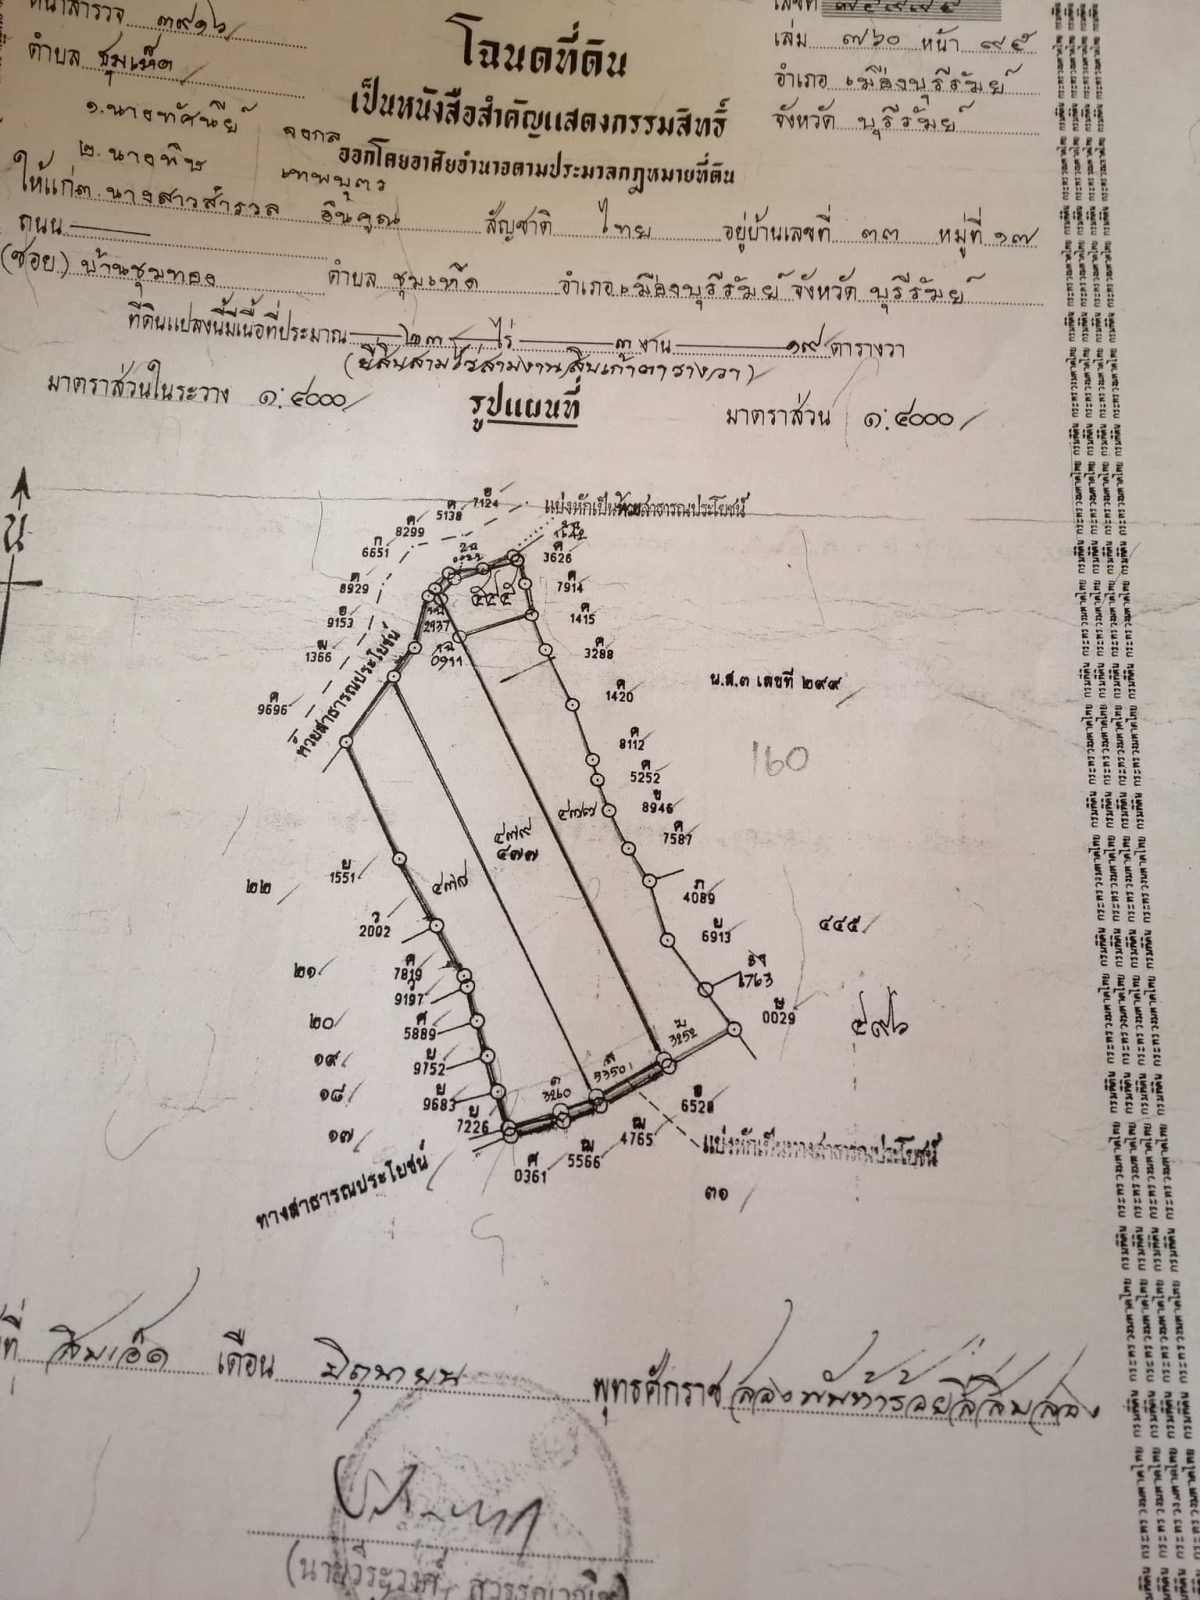 หน้าสำรวจ ๓๙๑๖
ตำบล ชุมเห็ด
โฉนดที่ดิน
เป็นหนังสือสำคัญแสดงกรรมสิทธิ์
ออกโดยอาศัยอำนาจตามประมวลกฎหมายที่ดิน
เลขที่
เล่ม ๗๖๐ หน้า ๙๕
อำเภอ เมืองบุรีรัมย์
จังหวัด บุรีรัมย์
๑.นางทัศนีย์ จงกล
๒.นางพิษ เทพบุตร
ให้แก่ ๓.นางสาวสำรวล อินคูณ สัญชาติ ไทย อยู่บ้านเลขที่ ๓๓ หมู่ที่ ๑๗
ถนน
(ซอย) บ้านชุมทอง ตำบล ชุมเห็ด อำเภอ เมืองบุรีรัมย์ จังหวัด บุรีรัมย์
ที่ดินแปลงนี้มีเนื้อที่ประมาณ ๒๓ ไร่ ๓ งาน ๑๙ ตารางวา
(ยี่สิบสามไร่สามงานสิบเก้าตารางวา)
มาตราส่วนในระวาง ๑:๔๐๐๐ รูปแผนที่ มาตราส่วน ๑:๔๐๐๐
น
แบ่งหักเป็นห้วยสาธารณประโยชน์
7124
5138
8299
6651
3626
8929
7914
9153
1415
2937
0911
1366
3288
9696
1420
น.ส.๓ เลขที่ ๒๙๙
ห้วยสาธารณประโยชน์
8112
5252
8946
7587
160
๔๗๙
๔๗๗
๔๓๗
1551
๔๓๘
4089
๒๒
2092
6913
๔๔๕
๒๑
7819
9197
1763
0029
๕๙๖
๒๐
5889
๑๙
9752
3252
53501
๑๘
9683
3260
6528
๑๗
7226
4765
5566
0361
แบ่งหักเป็นทางสาธารณประโยชน์
ทางสาธารณประโยชน์
๓๑
ที่ สิบเอ็ด เดือน มิถุนายน พุทธศักราช สองพันห้าร้อยสี่สิบสอง
(นายวีระวงศ์